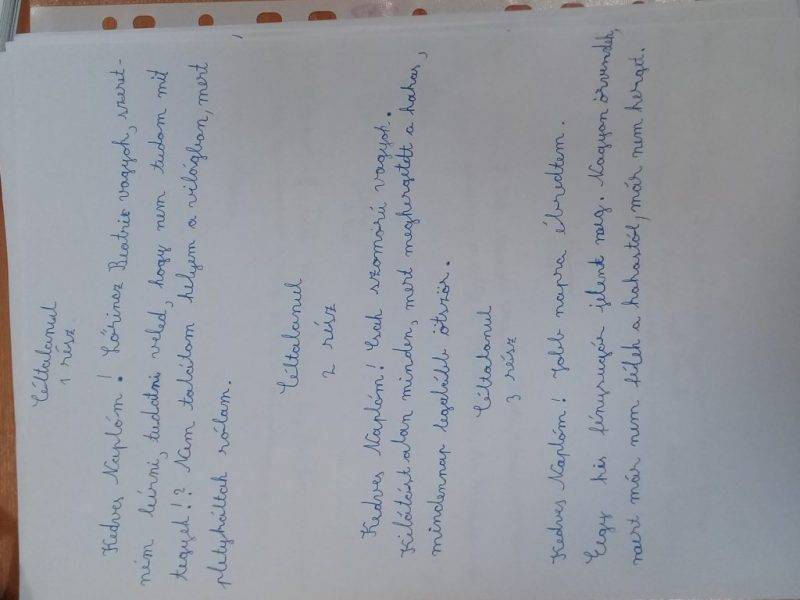 Céltalanul
1 rész
Kedves Naplóm! Lőrincz Beatrix vagyok, szeret-
ném leírni, tudatni veled, hogy nem tudom mit
tegyek!? Nem találom helyem a világban, mert
pletykáltak rólam.
Céltalanul
2 rész
Kedves Naplóm! Csak szomorú vagyok.
Kilátástalan minden, mert megkergetett a kakas,
mindennap legalább ötször.
Céltalanul
3 rész
Kedves Naplóm! Jobb napra ébredtem.
Egy kis fénysugár jelent meg. Nagyon örvendek,
mert már nem félek a kakastól, már nem kerget.